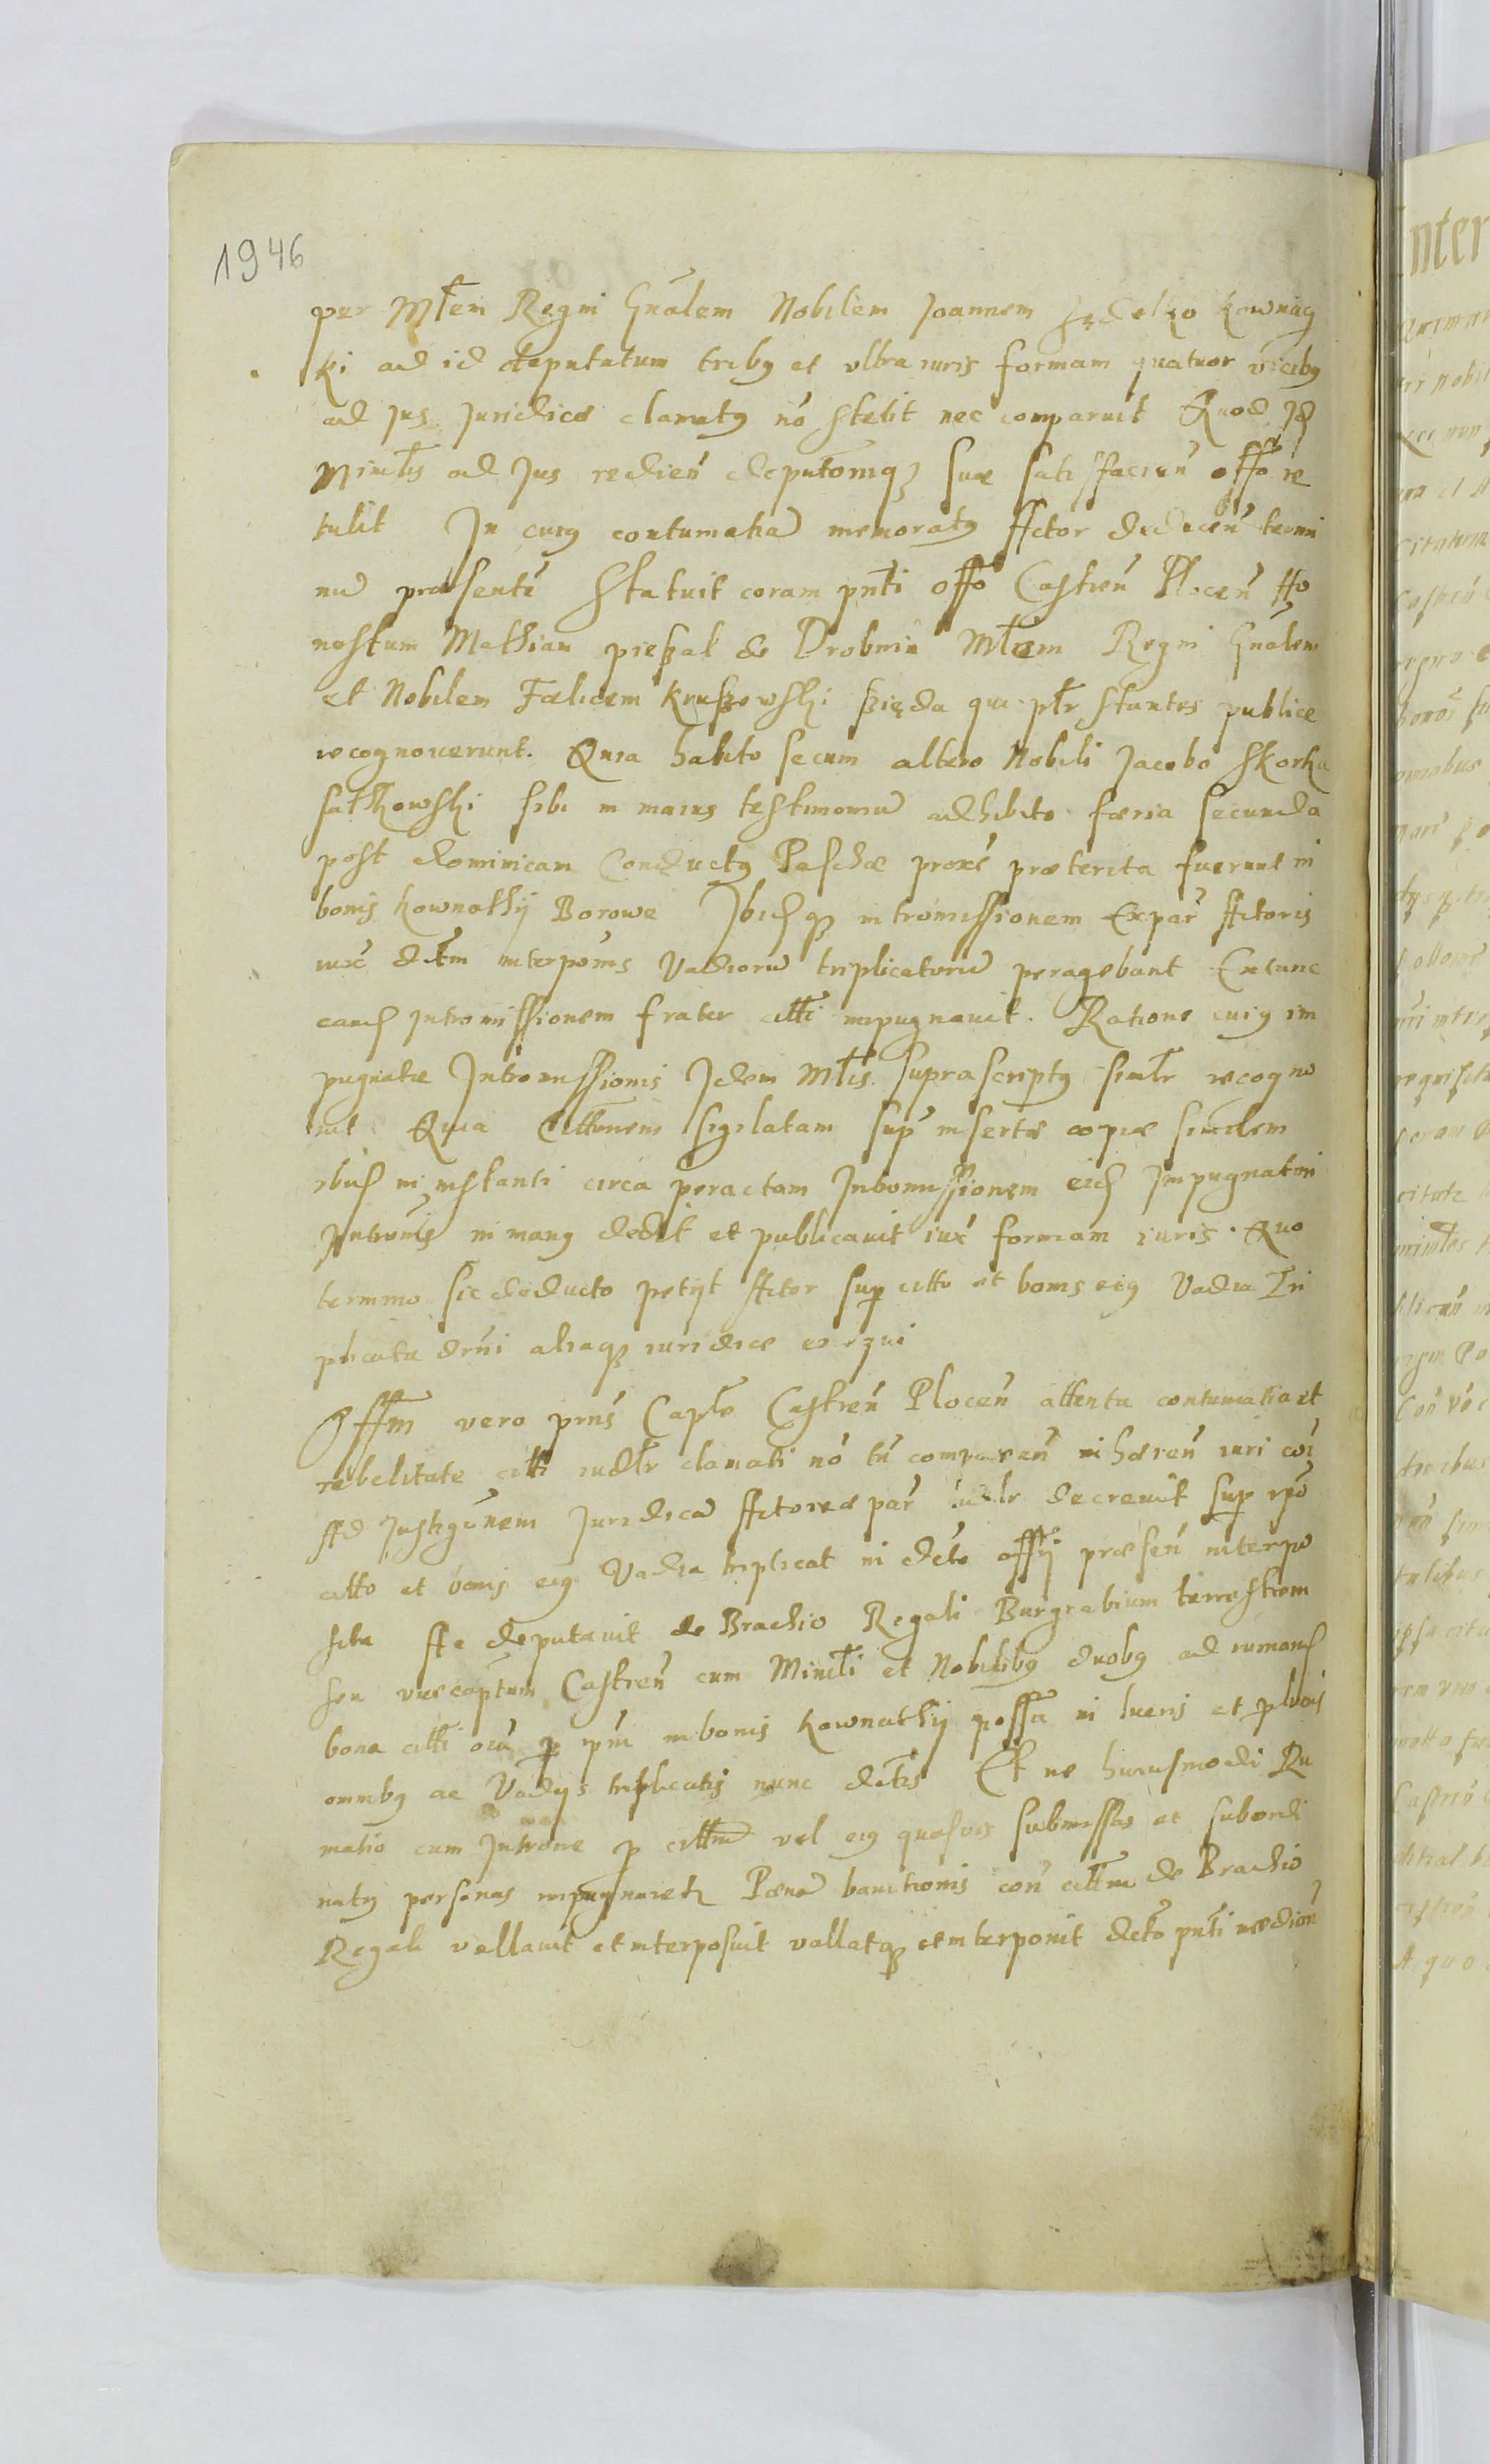 1946
per Mlem Regni Gnalem Nobilem Joannem Kownacz
ki ad id deputatum tribus et ultra iuris formam quatuor vicibus
ad Jus Juridice clamatus nō stetit nec comparuit Quod Jd
Minlis ad Jus redieñ deputōniqz suæ satisfacieñ offō re
tulit In cuius contumatiā memoratus Actor deduceñ termi
nū præsentē Statuit coram pñti offō Castreñ Ploceñ Ho
nestum Mathiam pieszak de Drobnin Mlrem Regni Gnalem
et Nobilem Fælicem Kruszewski qui plr stantes publice
recognoverunt. Quia habito secum altero Nobili Jacobo Skorka
satkowski sibi in maius testimoniū adhibito færia secunda
post dominicam Conductus Paschæ proxē præterita fuerunt in
bonis kownathy Borowe Jbidqz intromissionem Ex par Actoris
iux dctm interponis Vadiorū triplicatorū peragebant Extunc
eand intromissionem frater citti impugnavit. Ratione cuius im
pugnatæ Intromissionis Jdem Mlis suprascriptus similr recogno
vit Quia Cittonem sigilatam sup insertæ copiæ similem
ibid in instanti circa peractam Intromissionem eid Impugnatori
Intromis in manus dedit et publicavit iux formam iuris. Quo
termino sic deducto petyt Actor sup citto et bonis eius Vadia Tri
plicata dcrni aliaqz iuridice exequi
Offm vero pñs Caple Castreñ Ploceñ attenta contumatia et
rebelitate citti iudlr clamati nō tñ compareñ
Ad Instigōnem Juridicā Actoreæ par iudlr decrevit sup ipō
citto et bonis eius Vadia triplicat in dcto offy præseñ interpo
sita Ac deputavit de Brachio Regali Burgrabium terrestrem
seu vicecaptum Castreñ cum Minli et Nobilibus duobus ad rumand
bona citti p ipm in bonis Kownathy possa in lucris et
omnibus ac Vadys triplicatis nunc dctis Et ne huiusmodi Ru
matio cum Introne p cittm vel eius quasvis submissas et subordi
natas personas impugnaretr Pœnā banitionis con cittm de Brachio
Regali vallavit et interposuit vallatqz et interponit dcto pñti medioñ